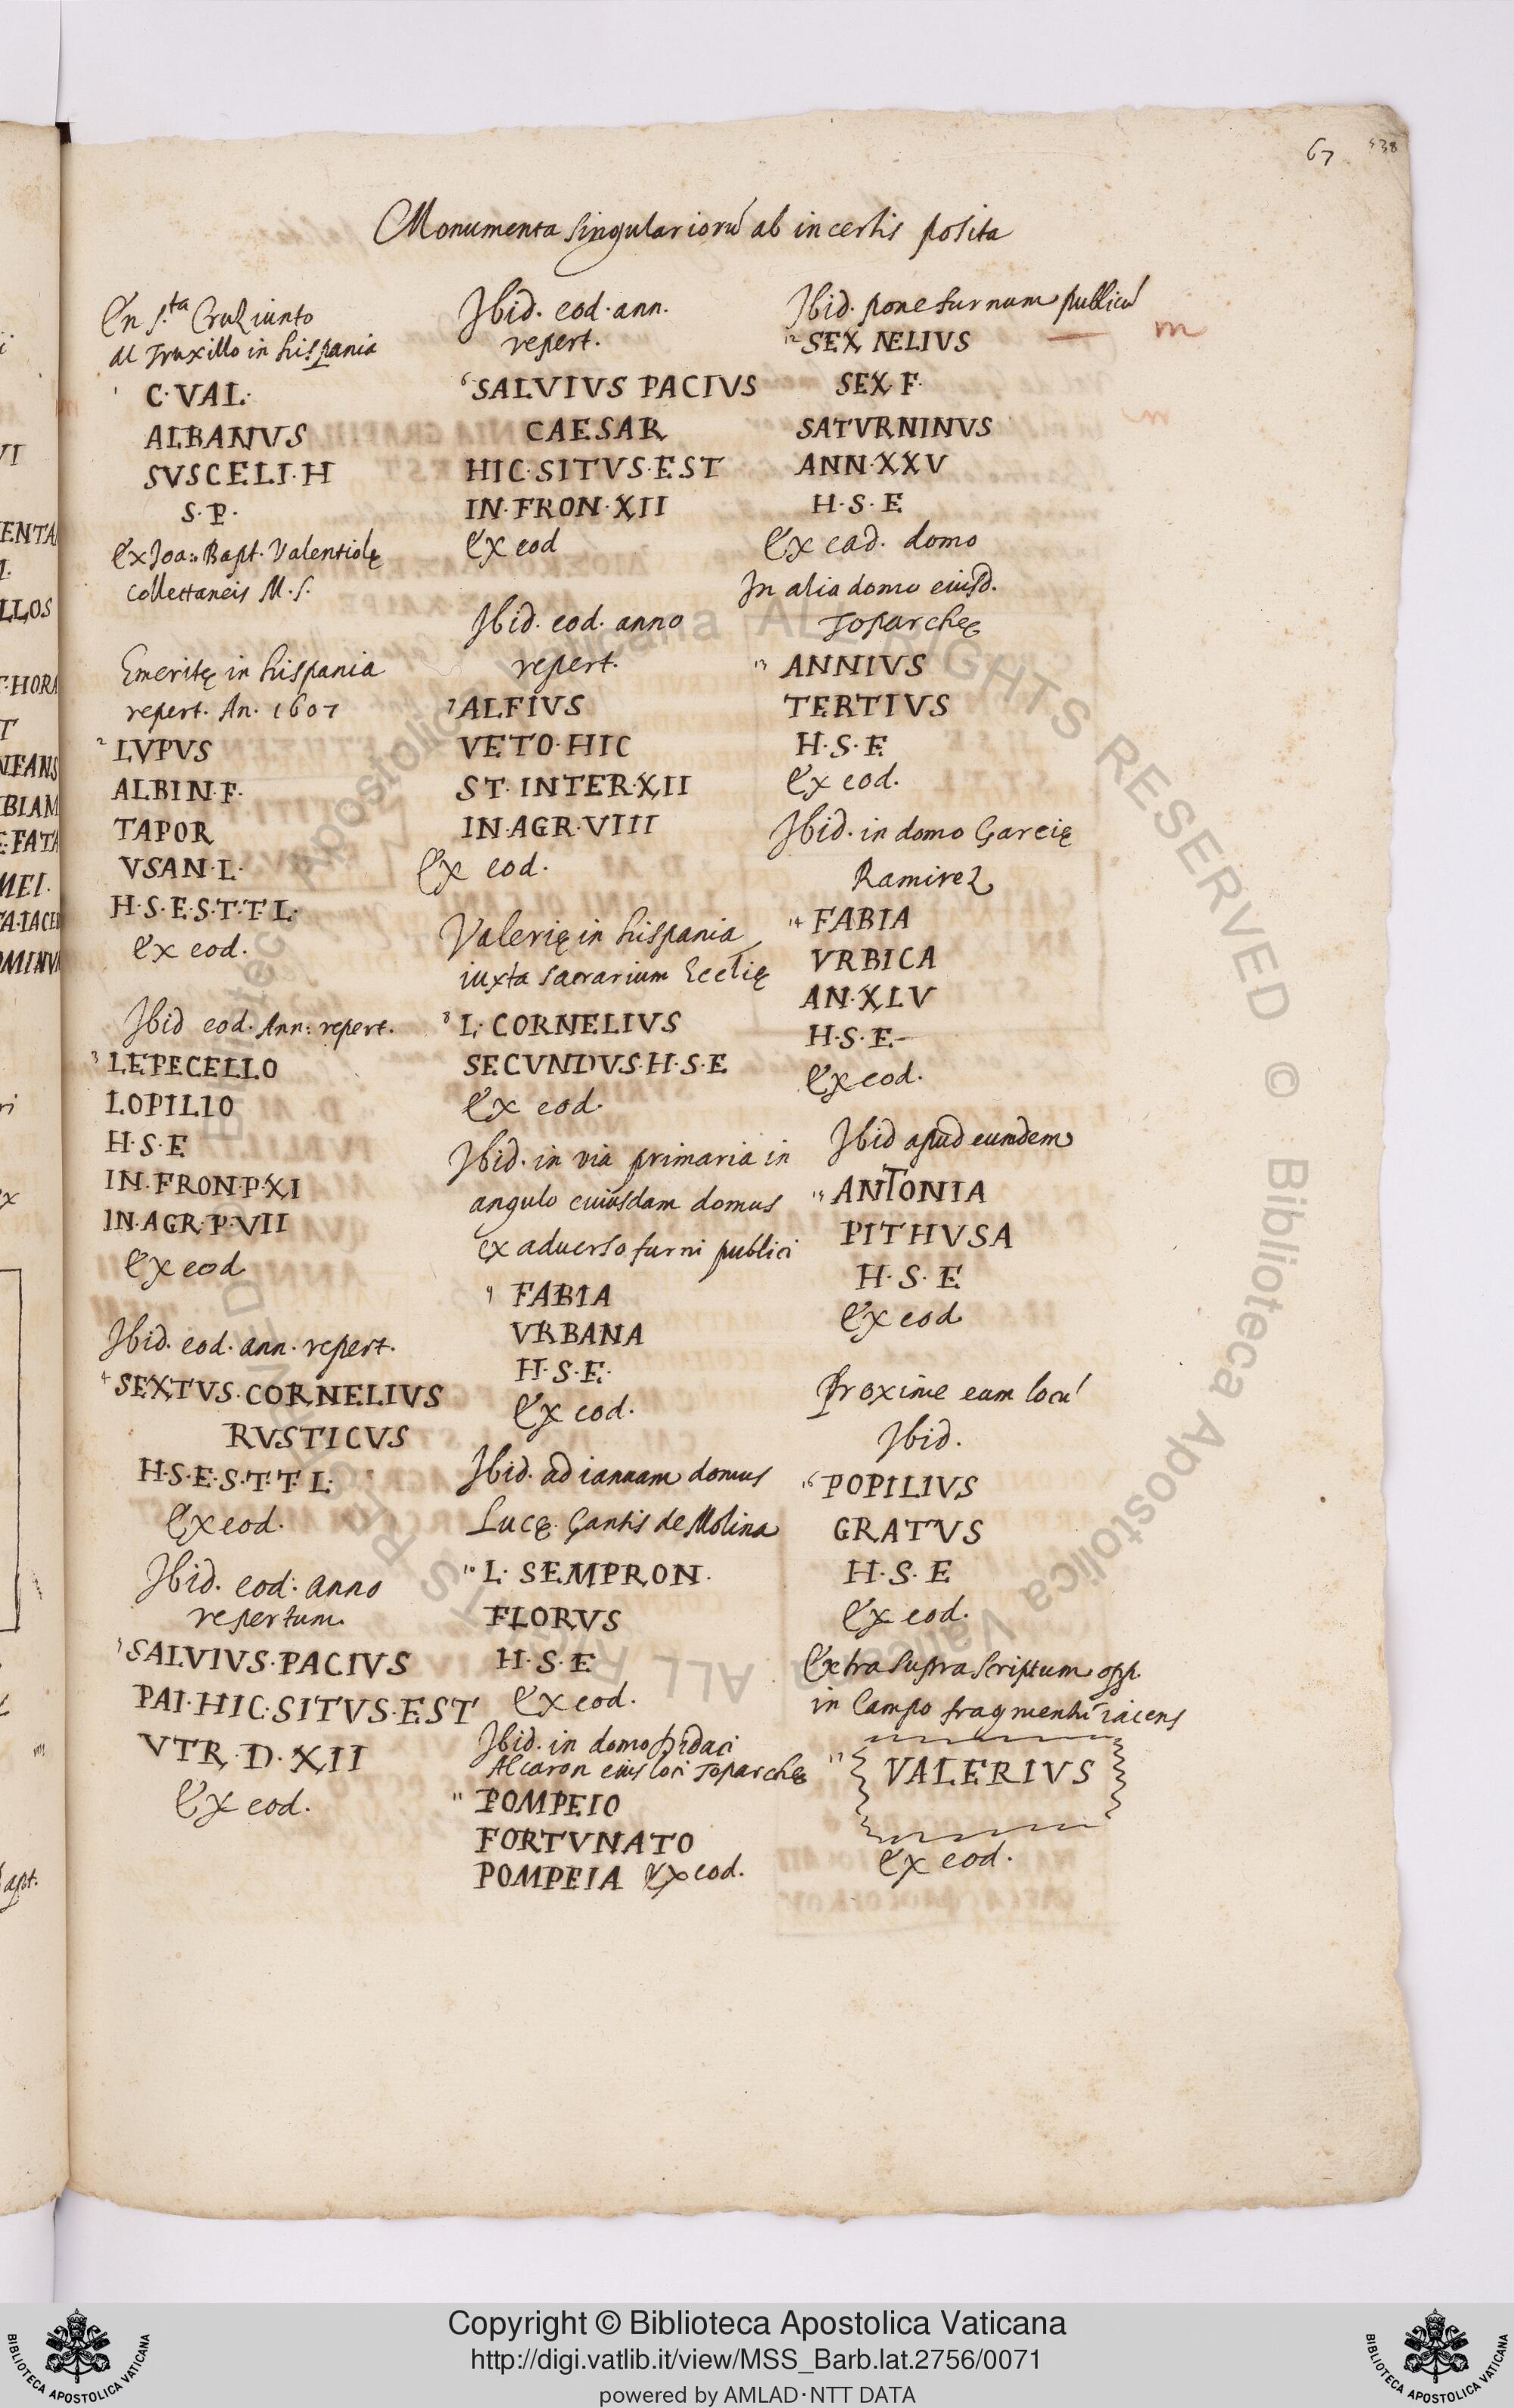 67 538
Monumenta singulariorũ ab incertis posita
En s.ta Cruz iunto
al Truxillo in hispania
1 C·VAL·
ALBANVS
SVSCELI·H
S·P·
Ex Joa: Bapt. Valentiolę
collectaneis M.S.
Emeritę in hispania
repert. An. 1607
2 LVPVS
ALBIN·F·
TAPOR
VSAN·L·
H·S·E·S·T·T·L·
Ex eod.
Ibid eod. Ann: repert.
3 LEPECELLO
LOPILIO
H·S·E
IN·FRON·P·XI
IN·AGR·P·VII
Ex eod
Ibid. eod. ann. repert.
4 SEXTVS·CORNELIVS
RVSTICVS
H·S·E·S·T·T·L·
Ex eod.
Ibid. eod. anno
repertum
5 SALVIVS·PACIVS
PAI·HIC·SITVS·EST
VTR·D·XII
Ex eod.
Ibid. eod. ann.
repert.
6 SALVIVS PACIVS
CAESAR
HIC·SITVS·EST
IN·FRON·XII
Ex eod
Ibid. eod. anno
repert.
7 ALFIVS
VETO·HIC
ST·INTER·XII
IN·AGR·VIII
Ex eod.
Valerię in hispania
iuxta sacrarium Ecclię
8 L·CORNELIVS
SECVNDVS·H·S·E
Ex eod.
Ibid. in via primaria in
angulo cuiusdam domus
ex aduerso furni publici
9 FABIA
VRBANA
H·S·E·
Ex eod.
Ibid. ad ianuam domus
Lucę Gantis de Molina
10 L·SEMPRON·
FLORVS
H·S·E
Ex eod.
Ibid. in domo Didaci
Alcaron eius loci Toparchę
11 POMPEIO
FORTVNATO
POMPEIA Ex eod.
Ibid. pone furnum publicũ
12 SEX ÆLIVS
SEX·F·
SATVRNINVS
ANN·XXV
H·S·E
Ex ead. domo
In alia domo eiusd.
Toparchę
13 ANNIVS
TERTIVS
H·S·E
Ex eod.
Ibid. in domo Garcię
Ramirez
14 FABIA
VRBICA
AN·XLV
H·S·E
Ex eod.
Ibid apud eundem
15 ANTONIA
PITHVSA
H·S·E
Ex eod
Proxime eum locũ
Ibid.
16 POPILIVS
GRATVS
H·S·E
Ex eod.
Extra suprascriptum opp.
in Campo fragmentũ iacens
17 VALERIVS
Ex eod.
m
Copyright © Biblioteca Apostolica Vaticana
http://digi.vatlib.it/view/MSS_Barb.lat.2756/0071
powered by AMLAD·NTT DATA
BIBLIOTECA APOSTOLICA VATICANA
BIBLIOTECA APOSTOLICA VATICANA